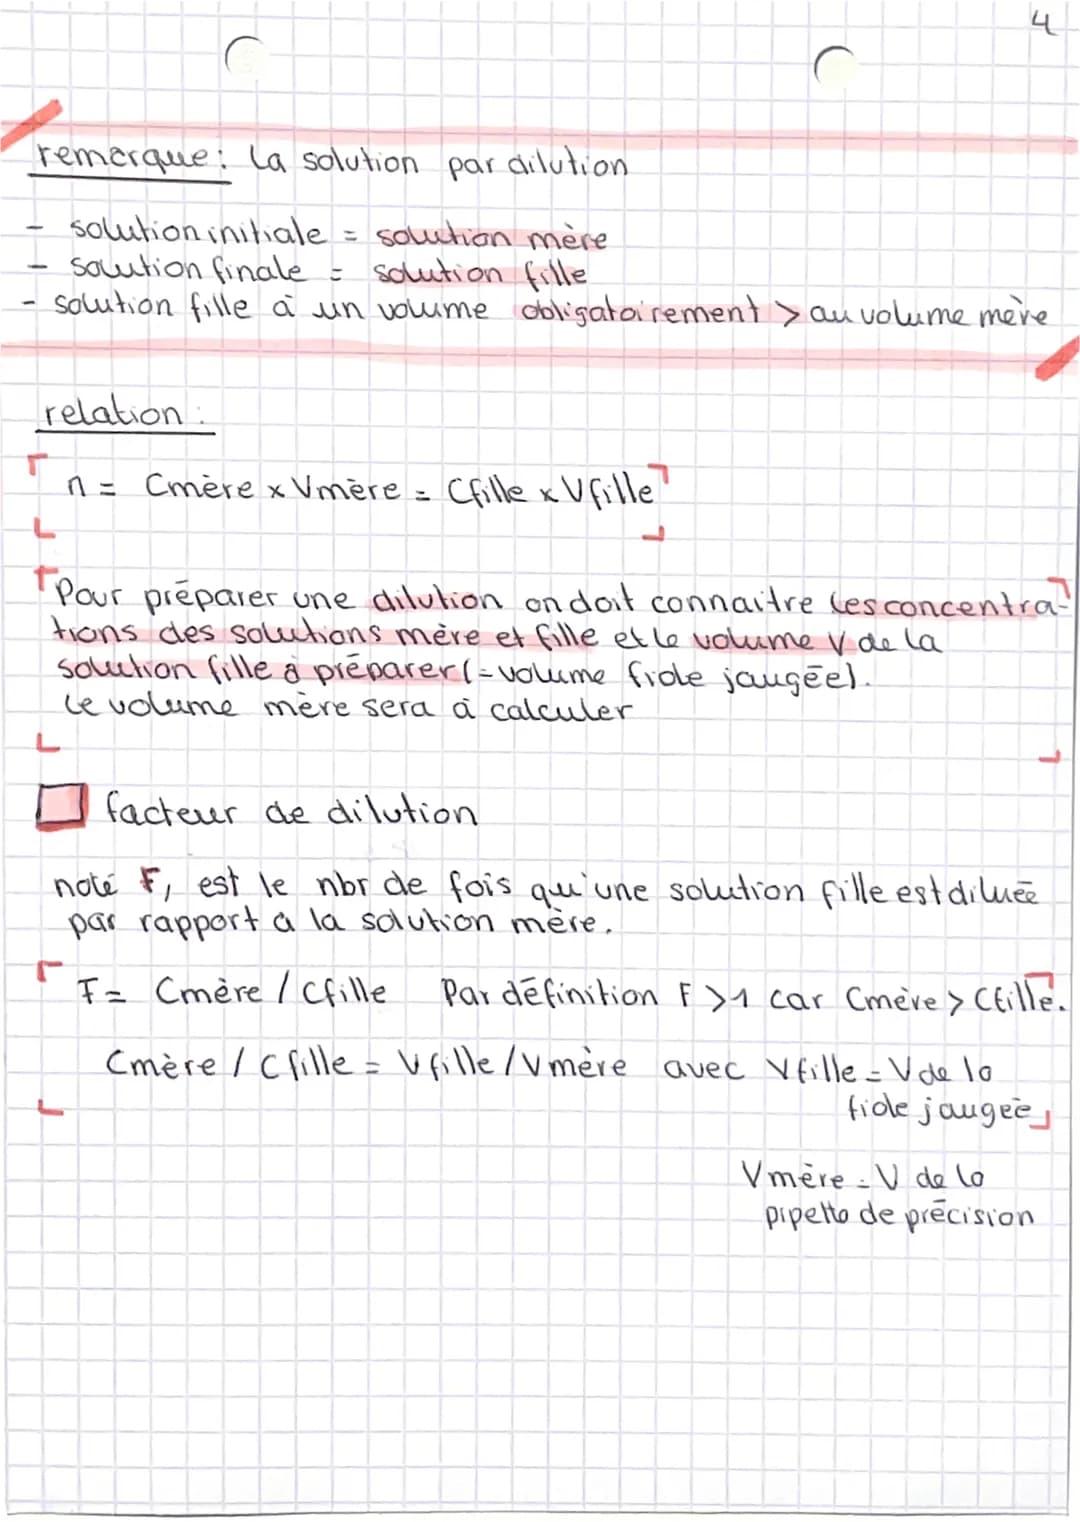 4
remarque: la solution par dilution
- solution initiale = solution mère
- solution finale = solution fille
- solution fille à un volume obligatoirement > au volume mère
relation:
n = Cmère x Vmère = Cfille x Vfille
Pour préparer une dilution on doit connaitre les concentra-
tions des solutions mère et fille et le volume V de la
solution fille à préparer (= volume fiole jaugée).
Le volume mère sera à calculer
facteur de dilution
noté F, est le nbr de fois qu'une solution fille est diluée
par rapport a la solution mère.
F = Cmère / Cfille Par définition F >1 car Cmère > Cfille.
Cmère / Cfille = Vfille / Vmère avec Vfille = V de la
fiole jaugée
Vmère = V de la
pipette de précision